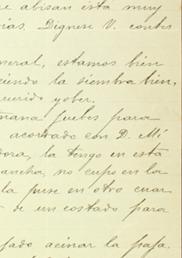 me abisan está muy
rias. Dignese V. contes
neral, estamos bien
ciendo la siembra bien,
querido yober.
mana jueves para
acortado con D. Mi
dora, la tengo en esta
ancha, no cupo en la
la puse en otro cuar
de un costado para
jado acinar la paja.